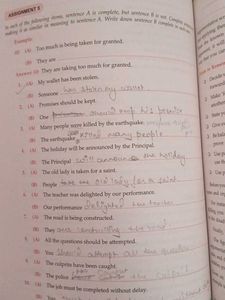 ASSIGNMENT 5
In each of the following items, sentence A is complete, but sentence B is not. Complete
making it as similar in meaning to sentence A. Write down sentence B complete in each
Example:
(i) (A) Too much is being taken for granted.
(B) They are
Answer: (i) They are taking too much for granted.
1. (A) My wallet has been stolen.
(B) Someone has stolen my wallet
2. (A) Promises should be kept.
(B) One should keep his promise
3. (A) Many people were killed by the earthquake.
(B) The earthquake killed many people
4. (A) The holiday will be announced by the Principal.
(B) The Principal will announce the holiday
5. (A) The old lady is taken for a saint.
(B) People old lady for a saint
6. (A) The teacher was delighted by our performance.
(B) Our performance delighted the teacher
7. (A) The road is being constructed.
(B) They are constructing the road
8. (A) All the questions should be attempted.
(B) You should attempt all the question
9. (A) The culprits have been caught.
(B) The police the
10. (A) The job must be completed without delay.